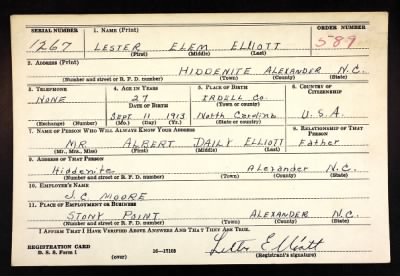 SERIAL NUMBER 1. NAME (Print) ORDER NUMBER
1267 LESTER ELEM ELLIOTT 589
(First) (Middle) (Last)
2. ADDRESS (Print)
HIDDENITE ALEXANDER N.C.
(Number and street or R. F. D. number) (Town) (County) (State)
3. TELEPHONE 4. AGE IN YEARS 5. PLACE OF BIRTH 6. COUNTRY OF CITIZENSHIP
NONE 27 IREDELL Co.
DATE OF BIRTH (Town or county)
SEPT 11 1913 North Carolina U.S.A.
(Exchange) (Number) (Mo.) (Day) (Yr.) (State or country)
7. NAME OF PERSON WHO WILL ALWAYS KNOW YOUR ADDRESS 8. RELATIONSHIP OF THAT PERSON
MR ALBERT DAILY ELLIOTT Father
(Mr., Mrs., Miss) (First) (Middle) (Last)
9. ADDRESS OF THAT PERSON
Hiddenite Alexander N.C.
(Number and street or R. F. D. number) (Town) (County) (State)
10. EMPLOYER'S NAME
J.C. MOORE
11. PLACE OF EMPLOYMENT OR BUSINESS
STONY POINT ALEXANDER N.C.
(Number and street or R. F. D. number) (Town) (County) (State)
I AFFIRM THAT I HAVE VERIFIED ABOVE ANSWERS AND THAT THEY ARE TRUE.
REGISTRATION CARD
D. S. S. Form 1 16—17105 Lester Elliott
(over) (Registrant's signature)